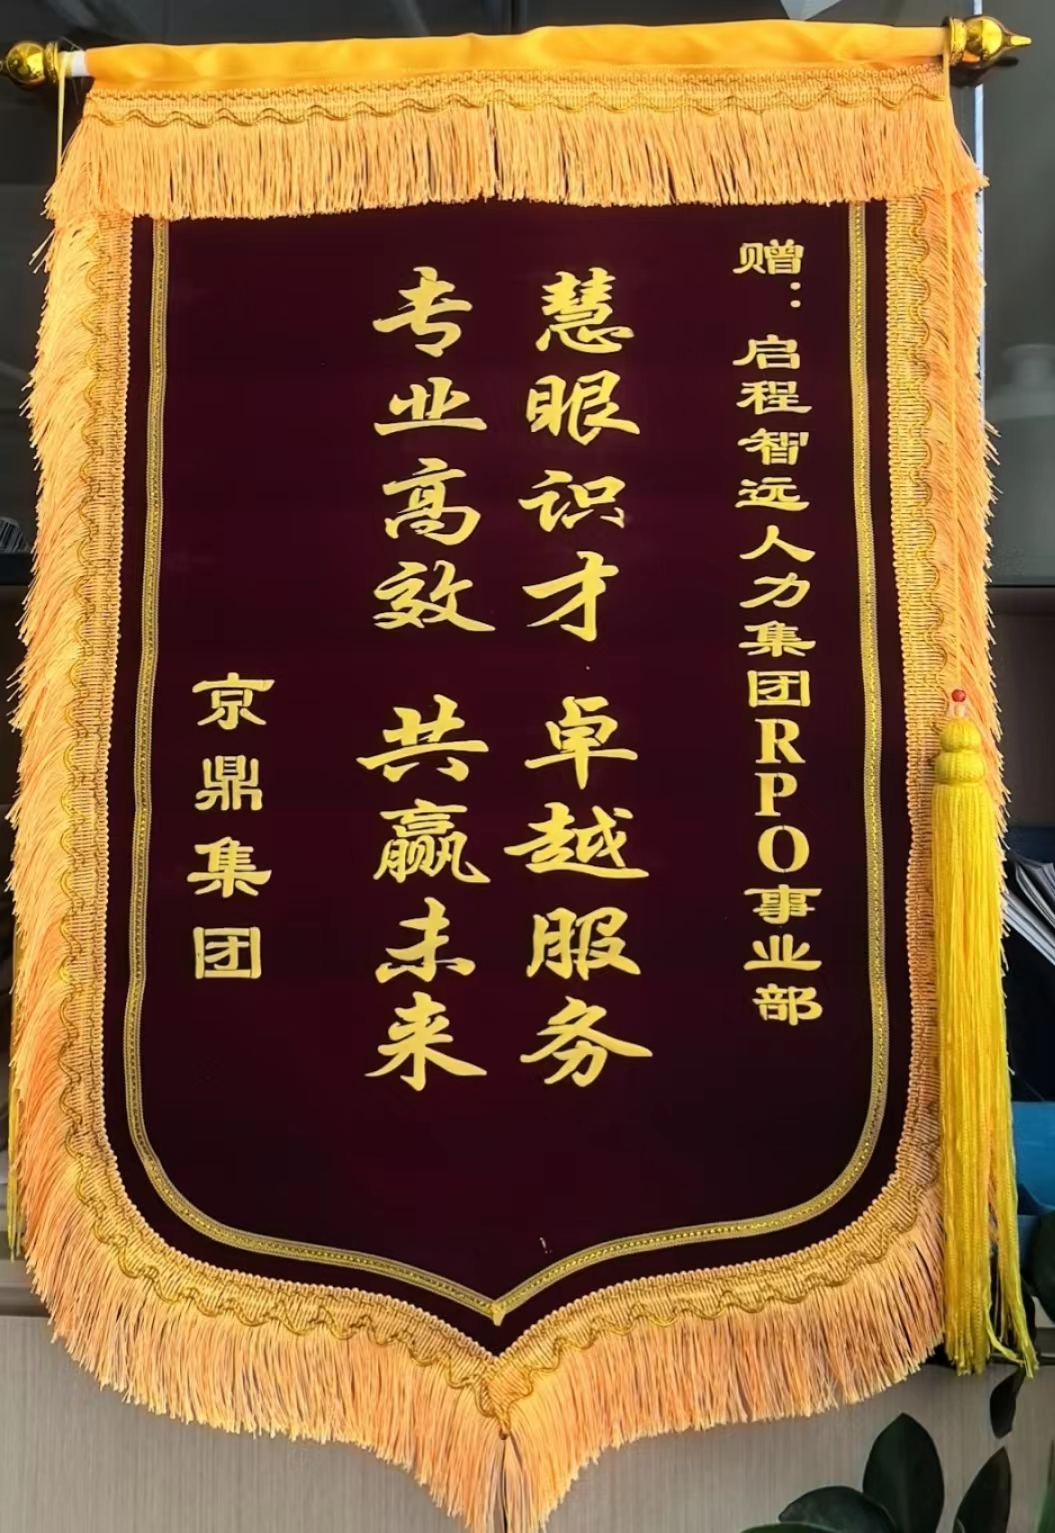 赠：启程智远人力集团RPO事业部
慧眼识才 卓越服务
专业高效 共赢未来
京鼎集团